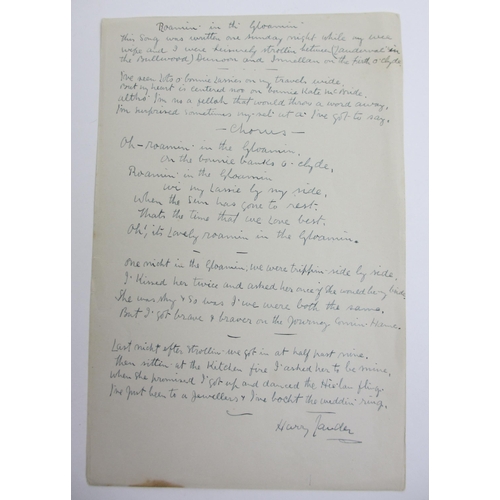 Roamin' in th' Gloamin'
This Song was written one Sunday night while my wee
wife and I were leisurely strollin between (Lauderdale in
the Bullwood) Dunoon and Innellan on the firth o' Clyde
I've seen lots o' bonnie lassies on my travels wide,
But my heart is centered noo on bonnie Kate McBride,
altho' I'm no a fellah that would throw a word away,
I'm surprised sometimes my-sel' at a' I've got to say.
— Chorus —
Oh - roamin' in the Gloamin,
On the bonnie banks o- Clyde,
Roamin' in the Gloamin
wi my Lassie by my side.
When the Sun has gone to rest.
That's the time that we Love best.
Oh', its Lovely roamin in the Gloamin.
One nicht in the Gloamin, we were trippin side by side,
I kissed her twice and asked her once if she would be my bride,
She was shy & So was I we were both the same.
But I got brave & braver on the Journey Comin Hame.
Last nicht efter strollin we got in at half past nine.
Then sittin at the Kitchen fire I asked her to be mine,
When she promised I got up and danced the Hielan fling,
I've Just been to a Jewellers & I've bocht the weddin' ring.
Harry Lauder